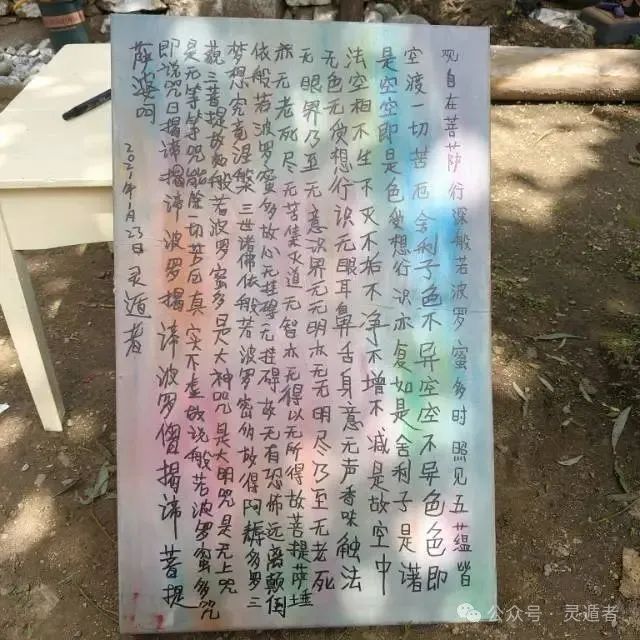 观自在菩萨行深般若波罗蜜多时照见五蕴皆
空渡一切苦厄舍利子色不异空空不异色色即
是空空即是色受想行识亦复如是舍利子是诸
法空相不生不灭不垢不净不增不减是故空中
无色无受想行识无眼耳鼻舌身意无声香味触法
无眼界乃至无意识界无无明亦无无明尽乃至无老死
亦无老死尽无苦集灭道无智亦无得以无所得故菩提萨埵
依般若波罗蜜多故心无挂碍无挂碍故无有恐怖远离颠倒
梦想究竟涅槃三世诸佛依般若波罗密多故得阿耨多罗三
藐三菩提故知般若波罗蜜多是大神咒是大明咒是无上咒
是无等等咒能除一切苦厄真实不虚故说般若波罗蜜多咒
即说咒曰揭谛揭谛波罗揭谛波罗僧揭谛菩提
萨婆诃
月23日灵遁者
公众号·灵遁者